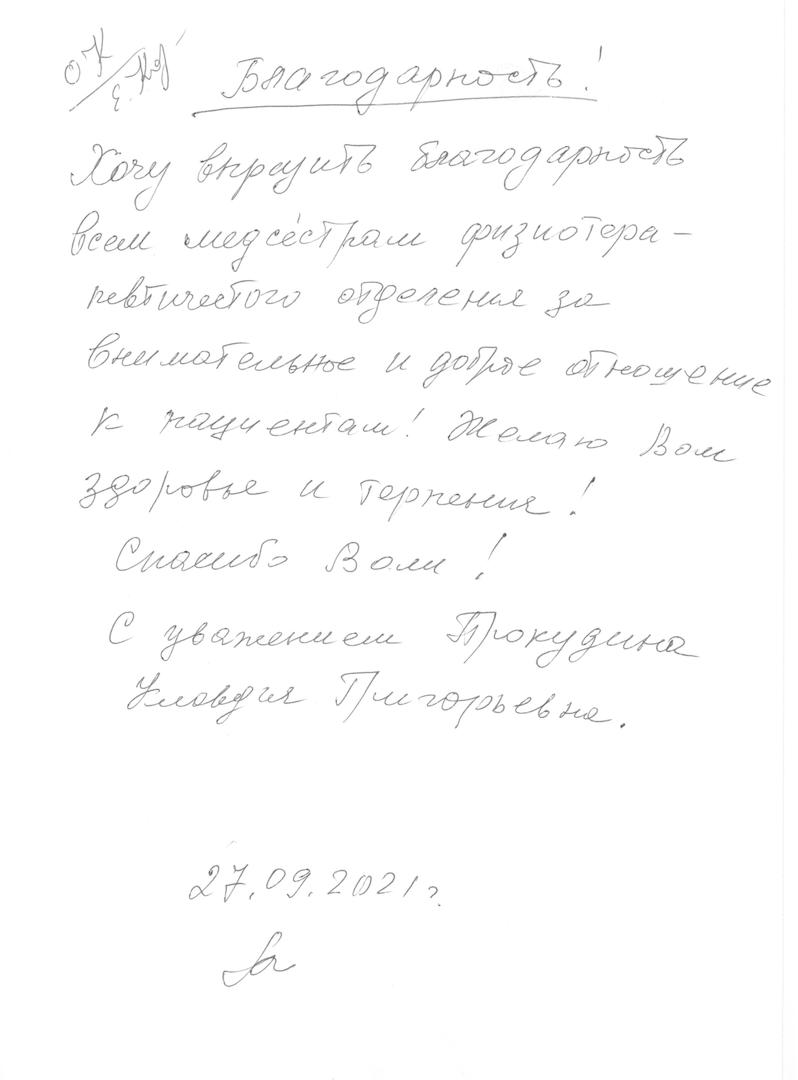 Благодарность!
Хочу выразить благодарность
всем медсёстрам физиотера-
певтического отделения за
внимательное и доброе отношение
к пациентам! Желаю Вам
здоровье и терпения!
Спасибо Вам!
С уважением Прокудина
Клавдия Григорьевна.
27.09.2021г.